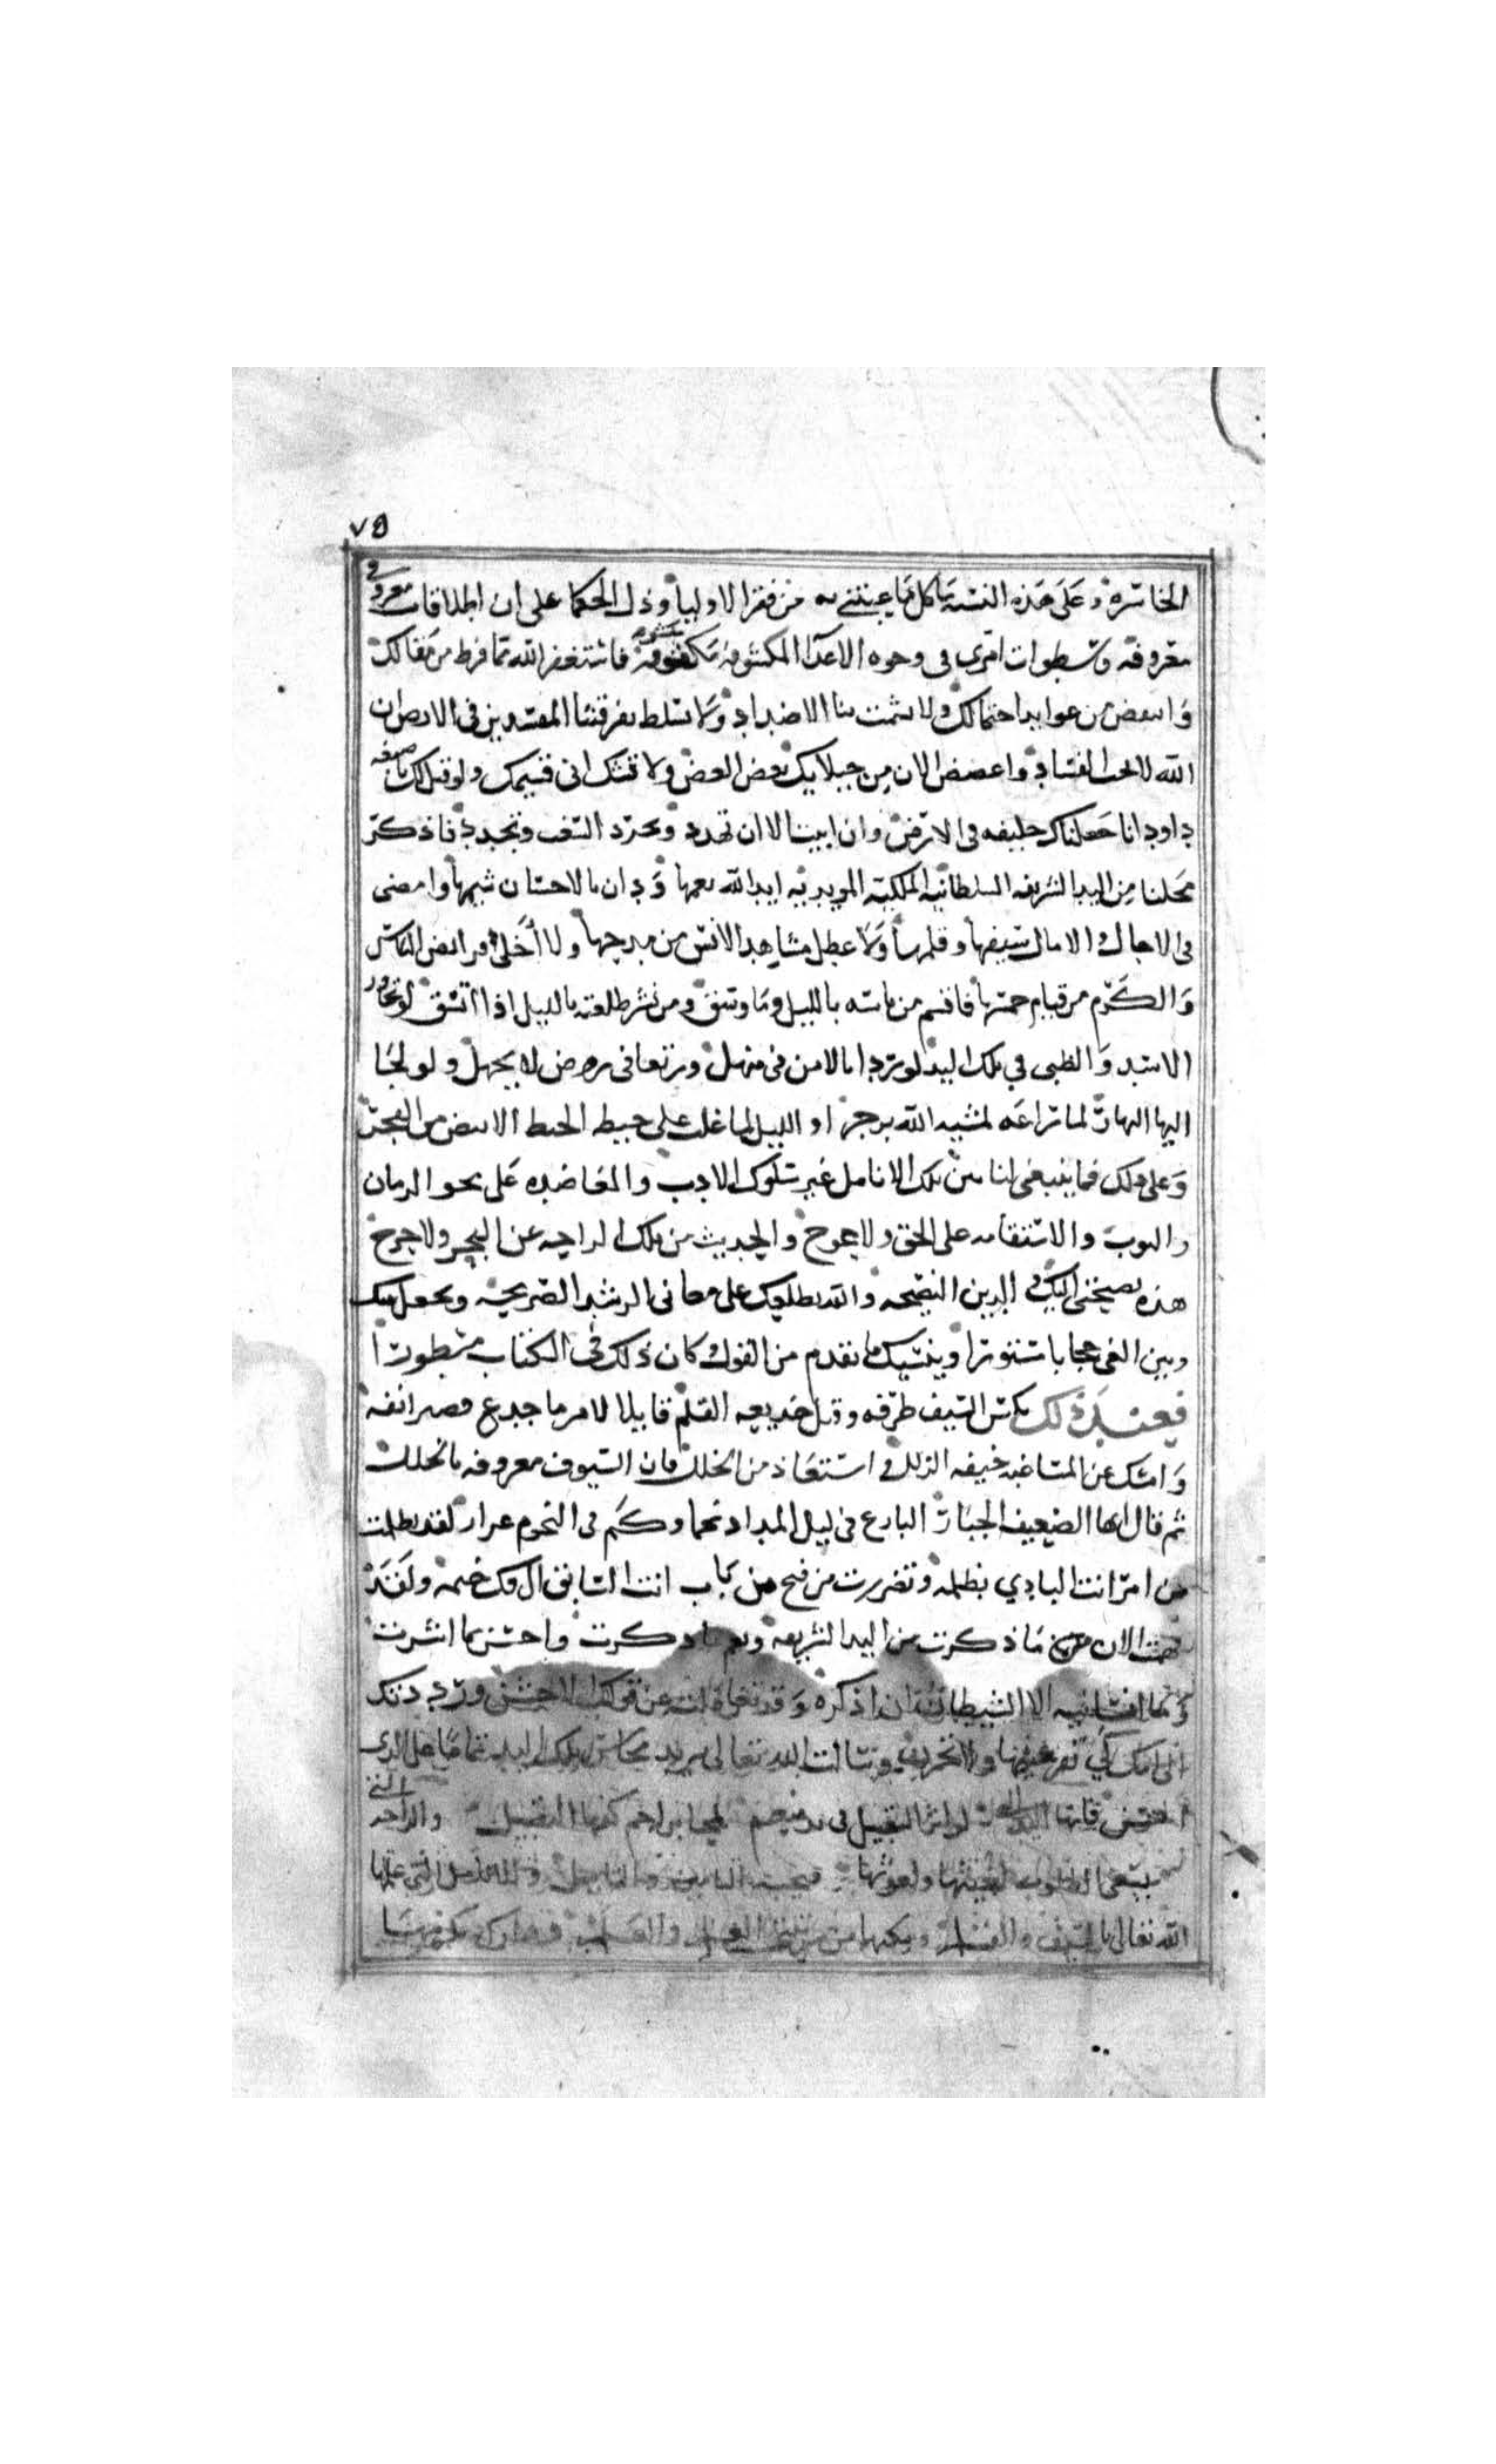 ٧٥
الخاسره وعلى هذه النسبه ما كل ما عبتني به من فقر الاوليا وذل الحكما على ان اطلاقات معروفي
معروفه وسطوات امري في وجوه الاعدا المكشوفه مكشوفه فاستغفر الله مما فرط من مقالك
وانفض من عوايد احتمالك ولا تشمت بنا الاضداد ولا تسلط بفرقتنا المفسدين في الارض ان
الله لا يحب الفساد واغضض الان من خيلايك بعض الغض ولا تشك اني قسيمك ولو قيل لك يا خليفه
داود انا جعلناك خليفه في الارض وان ابيت الا ان تهدد وتجرد الشغب وتجدد فاذكر
محلنا من اليد الشريفه السلطانيه الملكيه المويديه ايد الله نعمها وزان بالاحسان شيمها وامضى
في الاجال والامال سيفها وقلمها ولا عطل مشاهد الانس من مدحها ولا اخلى فرايض الباس
والكرم من قيام خمسها فاقسم من باسه بالليل وما وسق ومن بشر طلعته بالليل اذا اتسق لو تجاور
الاسد والظبي في تلك اليد لوردا بالامن في منهل ورتعا في روض لا يجهل ولو لجا
اليها النهار لما راعه لمشيه الله بزجر او الليل لما غلب على خيط الخيط الابيض من الفجر
وعلى ذلك فما ينبغي لنا بين تلك الانامل غير سلوك الادب والمعاضده على محو الزمان
والنوب والاستقامه على الحق ولا عوج والحديث من تلك الراحه عن البحر ولا حرج
هذه نصيحتي اليك والدين النصيحه والله يطلعك على معاني الرشد الصريحه ويجعل بينك
وبين الغي حجابا مستورا وينسيك ما تقدم من القول كان ذلك في الكتاب مسطورا
فعند ذلك نكس السيف طرفه وقبل خديعه القلم قايلا لامر ما جدع قصير انفه
وامسك عن المشاغبه خيفه الزلل واستعاذ من الخلل فان السيوف معروفه بالخلل
ثم قال ايها الضعيف الجبار البارع في ليل المداد نجما وكم في النجوم غرار لقد تظلمت
من امر انت البادي بظلمه وتضررت من فتح باب انت السابق الى فك ختمه ولقد
فهمت الان ما ذكرت من اليد الشريفه ونعم ما ذكرت واحسن بما اشرت
وما انسانيه الا الشيطان ان اذكره وقد تغافلت عن قولك الاحسن ورددتك
الى امك كي تقر عينها ولا تحزن وسالت الله تعالى يزيد محاسن تلك اليد تماما على الذي
احسن فانها اليد التي لو اثر التقبيل في يد منعم لمحا براجم كفها التقبيل والراحه التي
تسعى القلوب لغيثها ولغوثها فيجيب التامين والتاميل والانامل التي علمها
الله تعالى بالسيف والقلم ومكنها من رتبتي العلم والعلم